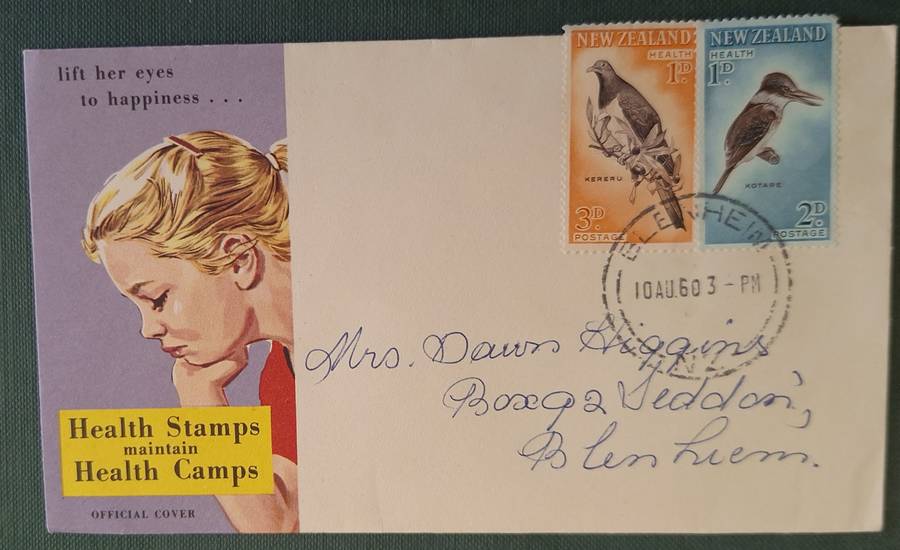 lift her eyes
to happiness . . .
NEW ZEALAND
HEALTH
1D.
KERERU
3D.
POSTAGE
NEW ZEALAND
HEALTH
1D.
KOTARE
2D.
POSTAGE
BLENHEIM
10AU.60 3 - PM
N.Z.
Mrs. Dawn Higgins
Seddon,
Blenhiem.
Health Stamps
maintain
Health Camps
OFFICIAL COVER